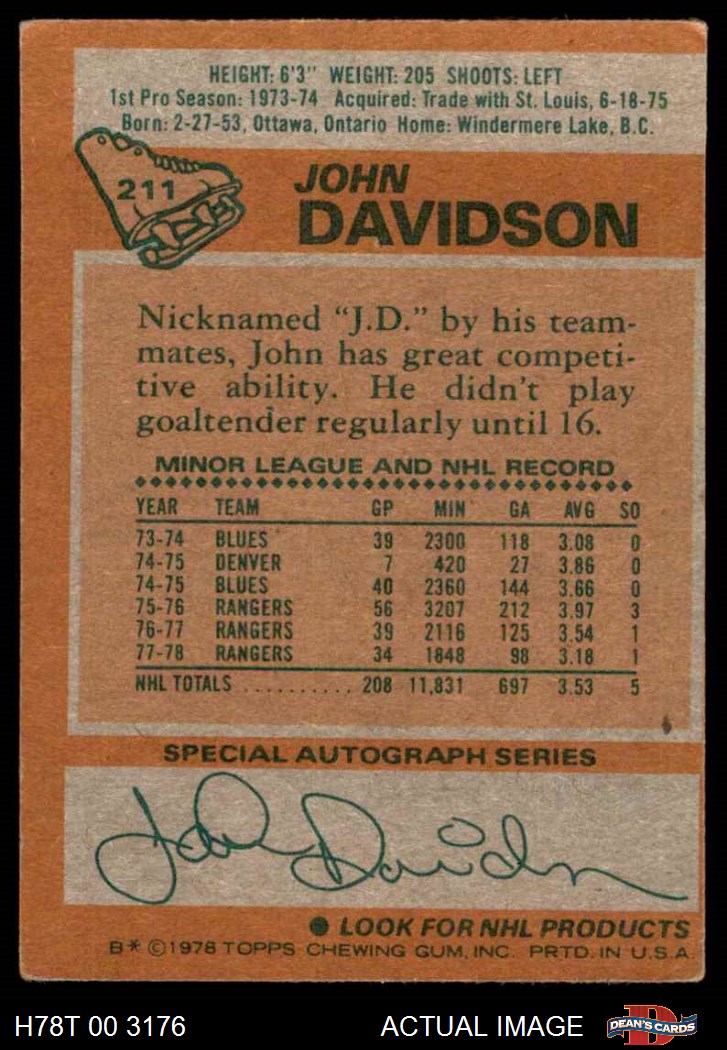 HEIGHT: 6'3" WEIGHT: 205 SHOOTS: LEFT
1st Pro Season: 1973-74 Acquired: Trade with St. Louis, 6-18-75
Born: 2-27-53, Ottawa, Ontario Home: Windermere Lake, B.C.
211
JOHN
DAVIDSON
Nicknamed "J.D." by his team-
mates, John has great competi-
tive ability. He didn't play
goaltender regularly until 16.
MINOR LEAGUE AND NHL RECORD
YEAR TEAM GP MIN GA AVG SO
73-74 BLUES 39 2300 118 3.08 0
74-75 DENVER 7 420 27 3.86 0
74-75 BLUES 40 2360 144 3.66 0
75-76 RANGERS 56 3207 212 3.97 3
76-77 RANGERS 39 2116 125 3.54 1
77-78 RANGERS 34 1848 98 3.18 1
NHL TOTALS .......... 208 11,831 697 3.53 5
SPECIAL AUTOGRAPH SERIES
John Davidson
● LOOK FOR NHL PRODUCTS
B* ©1978 TOPPS CHEWING GUM, INC. PRTD. IN U.S.A.
H78T 00 3176 ACTUAL IMAGE DEAN'S CARDS